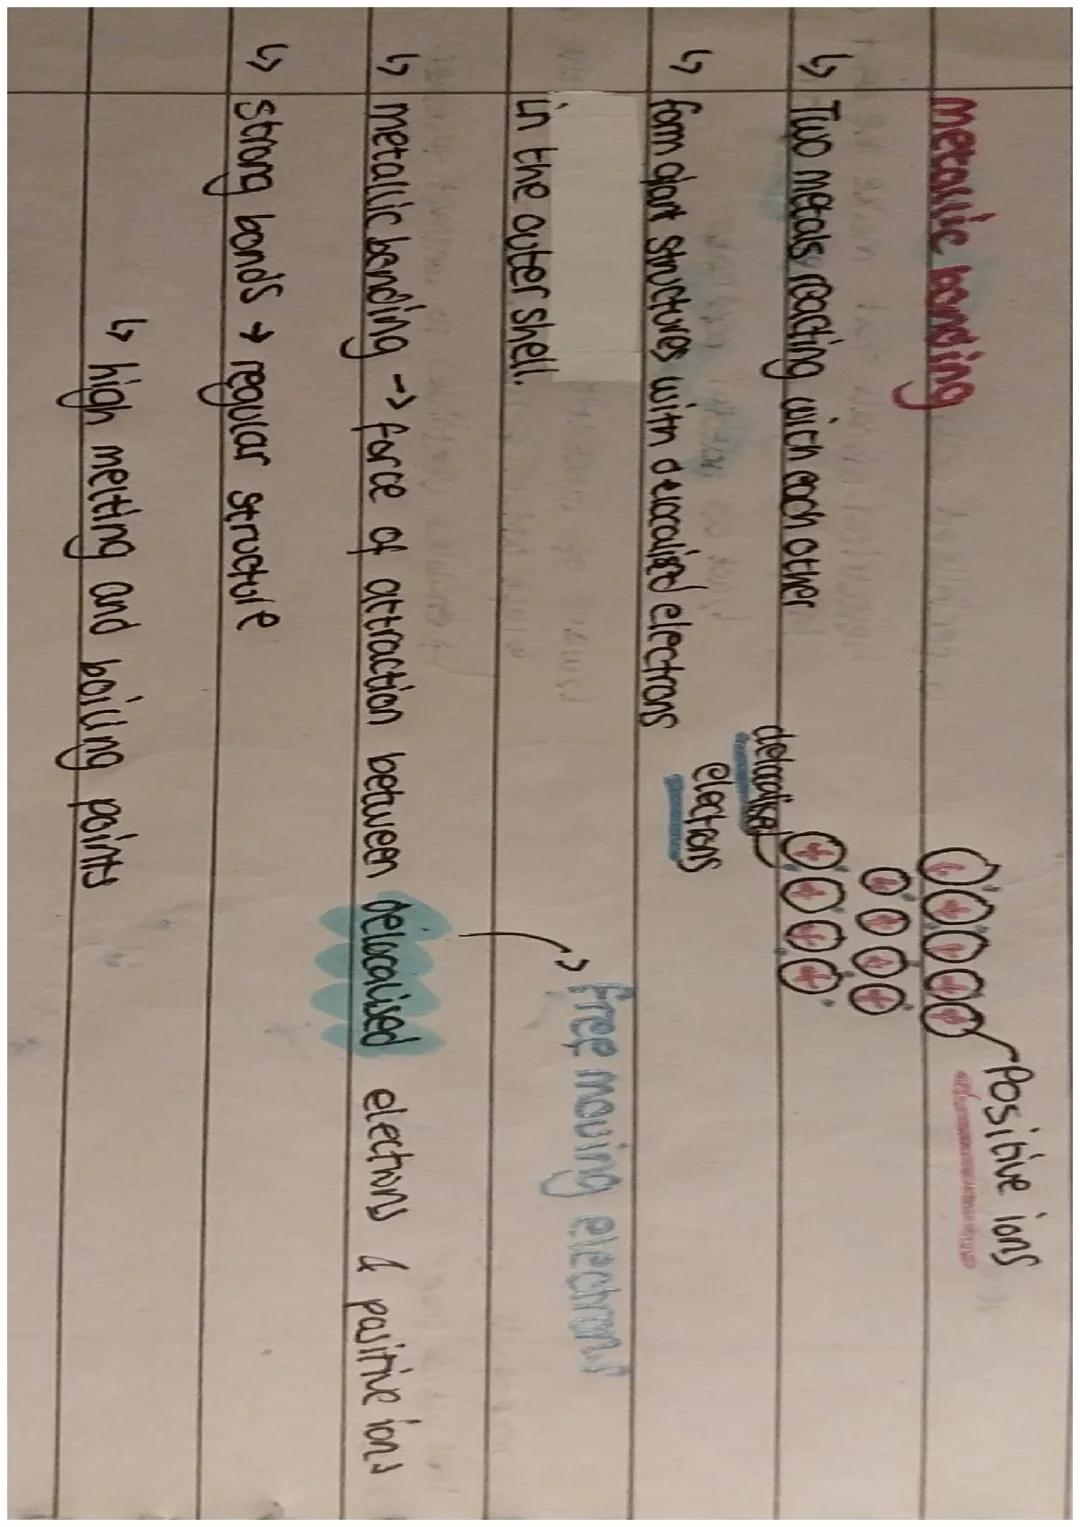 metallic bonding
Positive ions
↳ Two metals reacting with each other
delocalised
electrons
↳ form giant structures with delocalised electrons
in the outer shell.
free moving electrons
↳ metallic bonding → force of attraction between delocalised electrons & positive ions
↳ strong bonds → regular structure
↳ high melting and boiling points